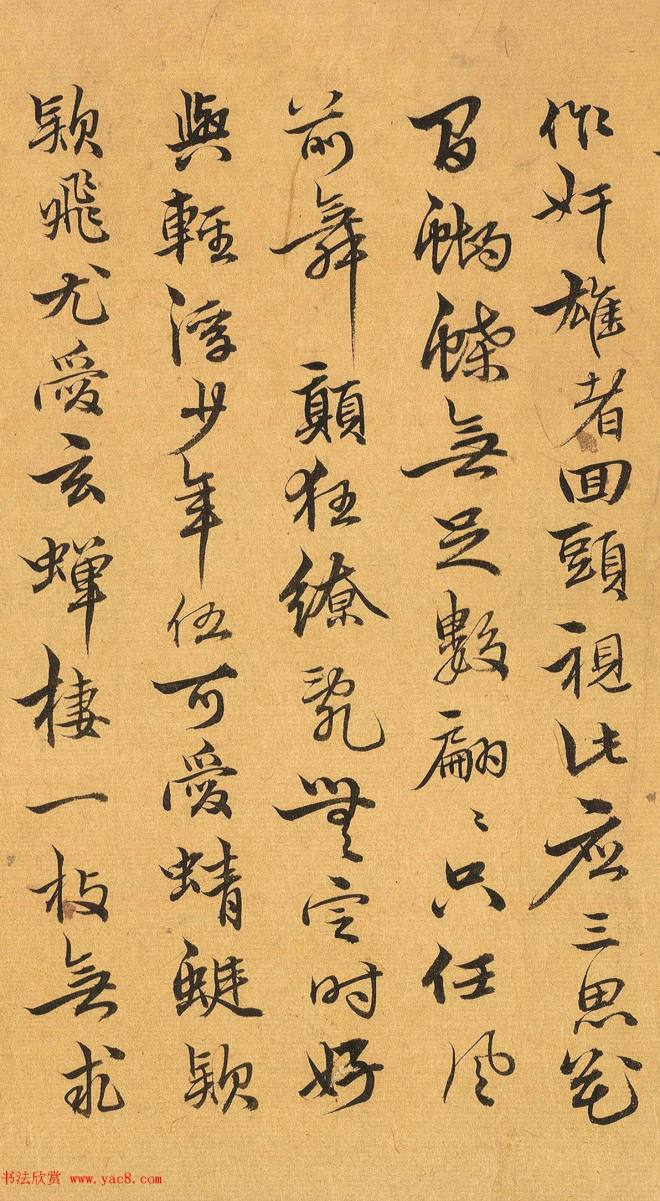 作奸雄者回頭視此應三思花
間蝴蝶無足數翩〻只任風
前舞顛狂繚亂無定時好
與輕浮少年伍可愛蜻蜓款
款飛尤愛玄蟬棲一枝無求
书法欣赏 www.yac8.com